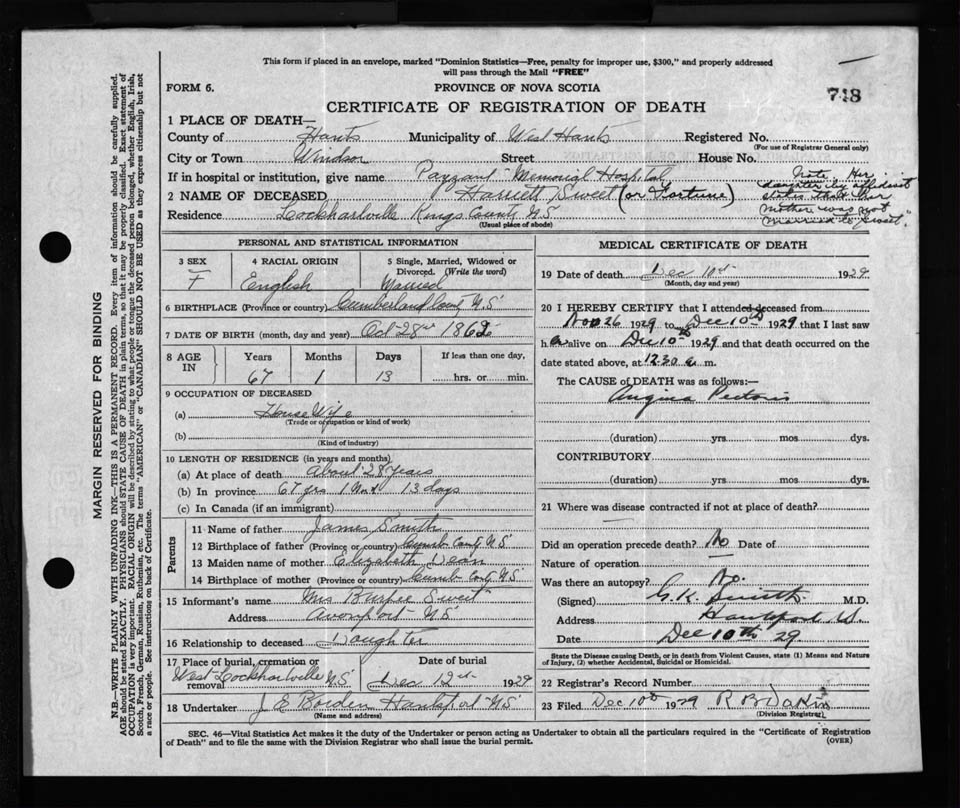 This form if placed in an envelope, marked "Dominion Statistics—Free, penalty for improper use, $300," and properly addressed
will pass through the Mail "FREE"
FORM 6.
PROVINCE OF NOVA SCOTIA
748
CERTIFICATE OF REGISTRATION OF DEATH
1 PLACE OF DEATH—
County of Hants Municipality of West Hants Registered No.
(For use of Registrar General only)
City or Town Windsor Street House No.
If in hospital or institution, give name Payzant Memorial Hospital
2 NAME OF DECEASED Harriett Sweet (or Fortune)
Residence Lockhartville Kings County N.S.
(Usual place of abode)
Note Her
daughter by affidavit
states that her
mother was not
married to "Sweet".
PERSONAL AND STATISTICAL INFORMATION
3 SEX F
4 RACIAL ORIGIN English
5 Single, Married, Widowed or
Divorced. (Write the word)
Married
6 BIRTHPLACE (Province or country) Cumberland Coun N.S.
7 DATE OF BIRTH (month, day and year) Oct 28 1862
8 AGE IN
Years Months Days If less than one day,
67 1 13 hrs. or min.
9 OCCUPATION OF DECEASED
(a) House Wife
(Trade or occupation or kind of work)
(b)
(Kind of industry)
10 LENGTH OF RESIDENCE (in years and months)
(a) At place of death About 28 years
(b) In province 67 yrs 1 Mon 13 days
(c) In Canada (if an immigrant)
Parents
11 Name of father James Smith
12 Birthplace of father (Province or country) Cumb Conty N.S.
13 Maiden name of mother Elizabeth Dean
14 Birthplace of mother (Province or country) Cumb Conty N.S.
15 Informant's name Mrs Burpee Sweet
Address Avonport N.S.
16 Relationship to deceased Daughter
17 Place of burial, cremation or Date of burial
removal West Lockhartville N.S. Dec 12 1929
18 Undertaker J E Borden Hantsport N.S.
(Name and address)
MEDICAL CERTIFICATE OF DEATH
19 Date of death Dec 10th 1929
(Month, day and year)
20 I HEREBY CERTIFY that I attended deceased from
Nov 26 1929 to Dec 10th 1929 that I last saw
h alive on Dec 10th 1929 and that death occurred on the
date stated above, at 12.30 a. m.
The CAUSE OF DEATH was as follows:—
Angina Pectoris
(duration) yrs. mos. dys.
CONTRIBUTORY
(duration) yrs. mos. dys.
21 Where was disease contracted if not at place of death?
Did an operation precede death? No Date of
Nature of operation
Was there an autopsy? No.
(Signed) G.K. Smith M.D.
Address Hantsport N.S.
Date Dec 10th 29
State the Disease causing Death, or in death from Violent Causes, state (1) Means and Nature
of Injury, (2) whether Accidental, Suicidal or Homicidal.
22 Registrar's Record Number
23 Filed Dec 10th 1929 R B Dakin
(Division Registrar)
SEC. 46—Vital Statistics Act makes it the duty of the Undertaker or person acting as Undertaker to obtain all the particulars required in the "Certificate of Registration
of Death" and to file the same with the Division Registrar who shall issue the burial permit.
(OVER)
MARGIN RESERVED FOR BINDING
N.B.—WRITE PLAINLY WITH UNFADING INK—THIS IS A PERMANENT RECORD. Every item of information should be carefully supplied.
AGE should be stated EXACTLY. PHYSICIANS should STATE CAUSE OF DEATH in plain terms, so that it may be properly classified. Exact statement of
OCCUPATION is very important. RACIAL ORIGIN will be described by stating to what people or tongue the deceased person belonged, whether English, Irish,
Scotch, French, German, Russian, Ruthenian, etc. The terms "AMERICAN" or "CANADIAN" SHOULD NOT BE USED as they express citizenship but not
a race or people. See instructions on back of Certificate.